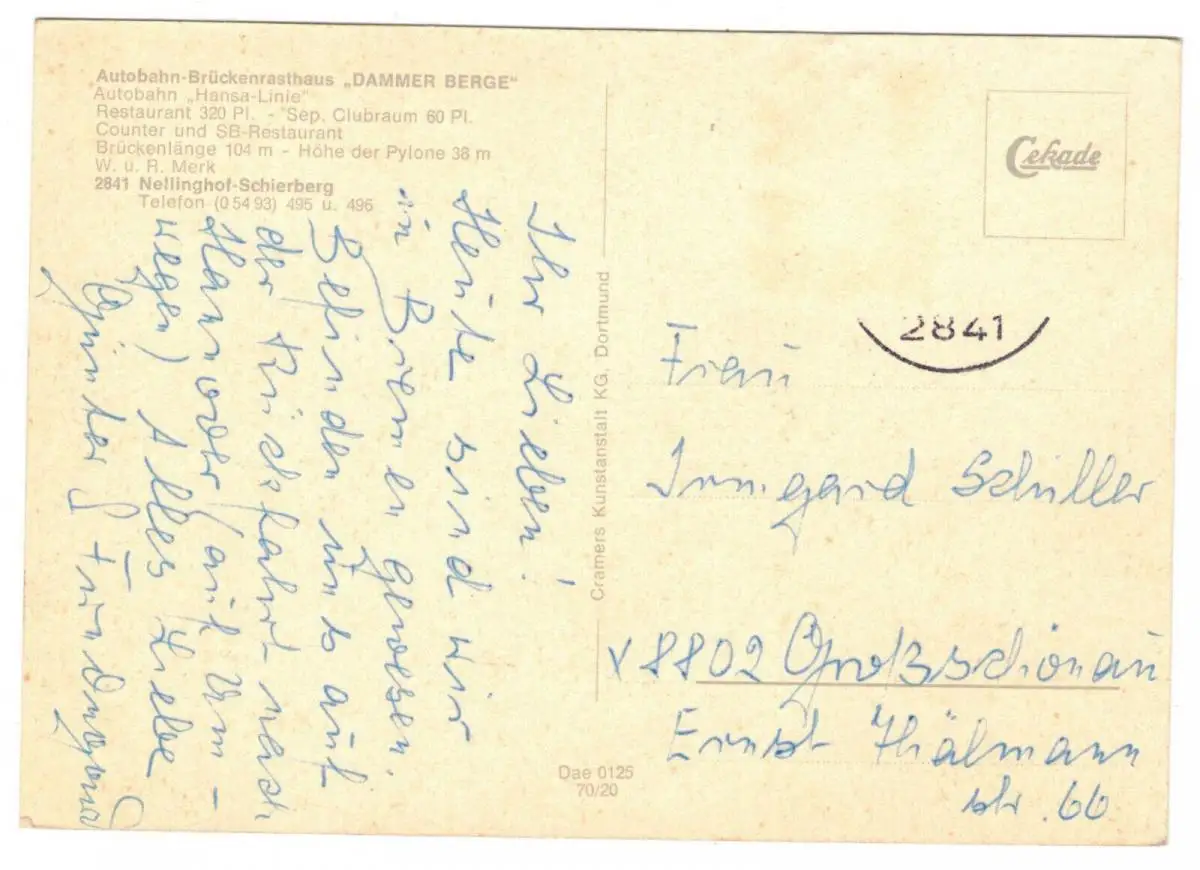 Autobahn-Brückenrasthaus „DAMMER BERGE"
Autobahn „Hansa-Linie"
Restaurant 320 Pl. - Sep. Clubraum 60 Pl.
Counter und SB-Restaurant
Brückenlänge 104 m - Höhe der Pylone 38 m
W. u. R. Merk
2841 Nellinghof-Schierberg
Telefon (0 54 93) 495 u. 496
Ihr Lieben!
Heute sind wir
in Bremen gewesen.
Befinden uns auf
der Rückfahrt nach
Hannover (auf Um-
wegen) Alles Liebe
Günter
Cramers Kunstanstalt KG, Dortmund
Dae 0125
70/20
Cekade
2841
Frau
Irmgard Schiller
8802 Großschönau
Ernst Thälmann
str. 66